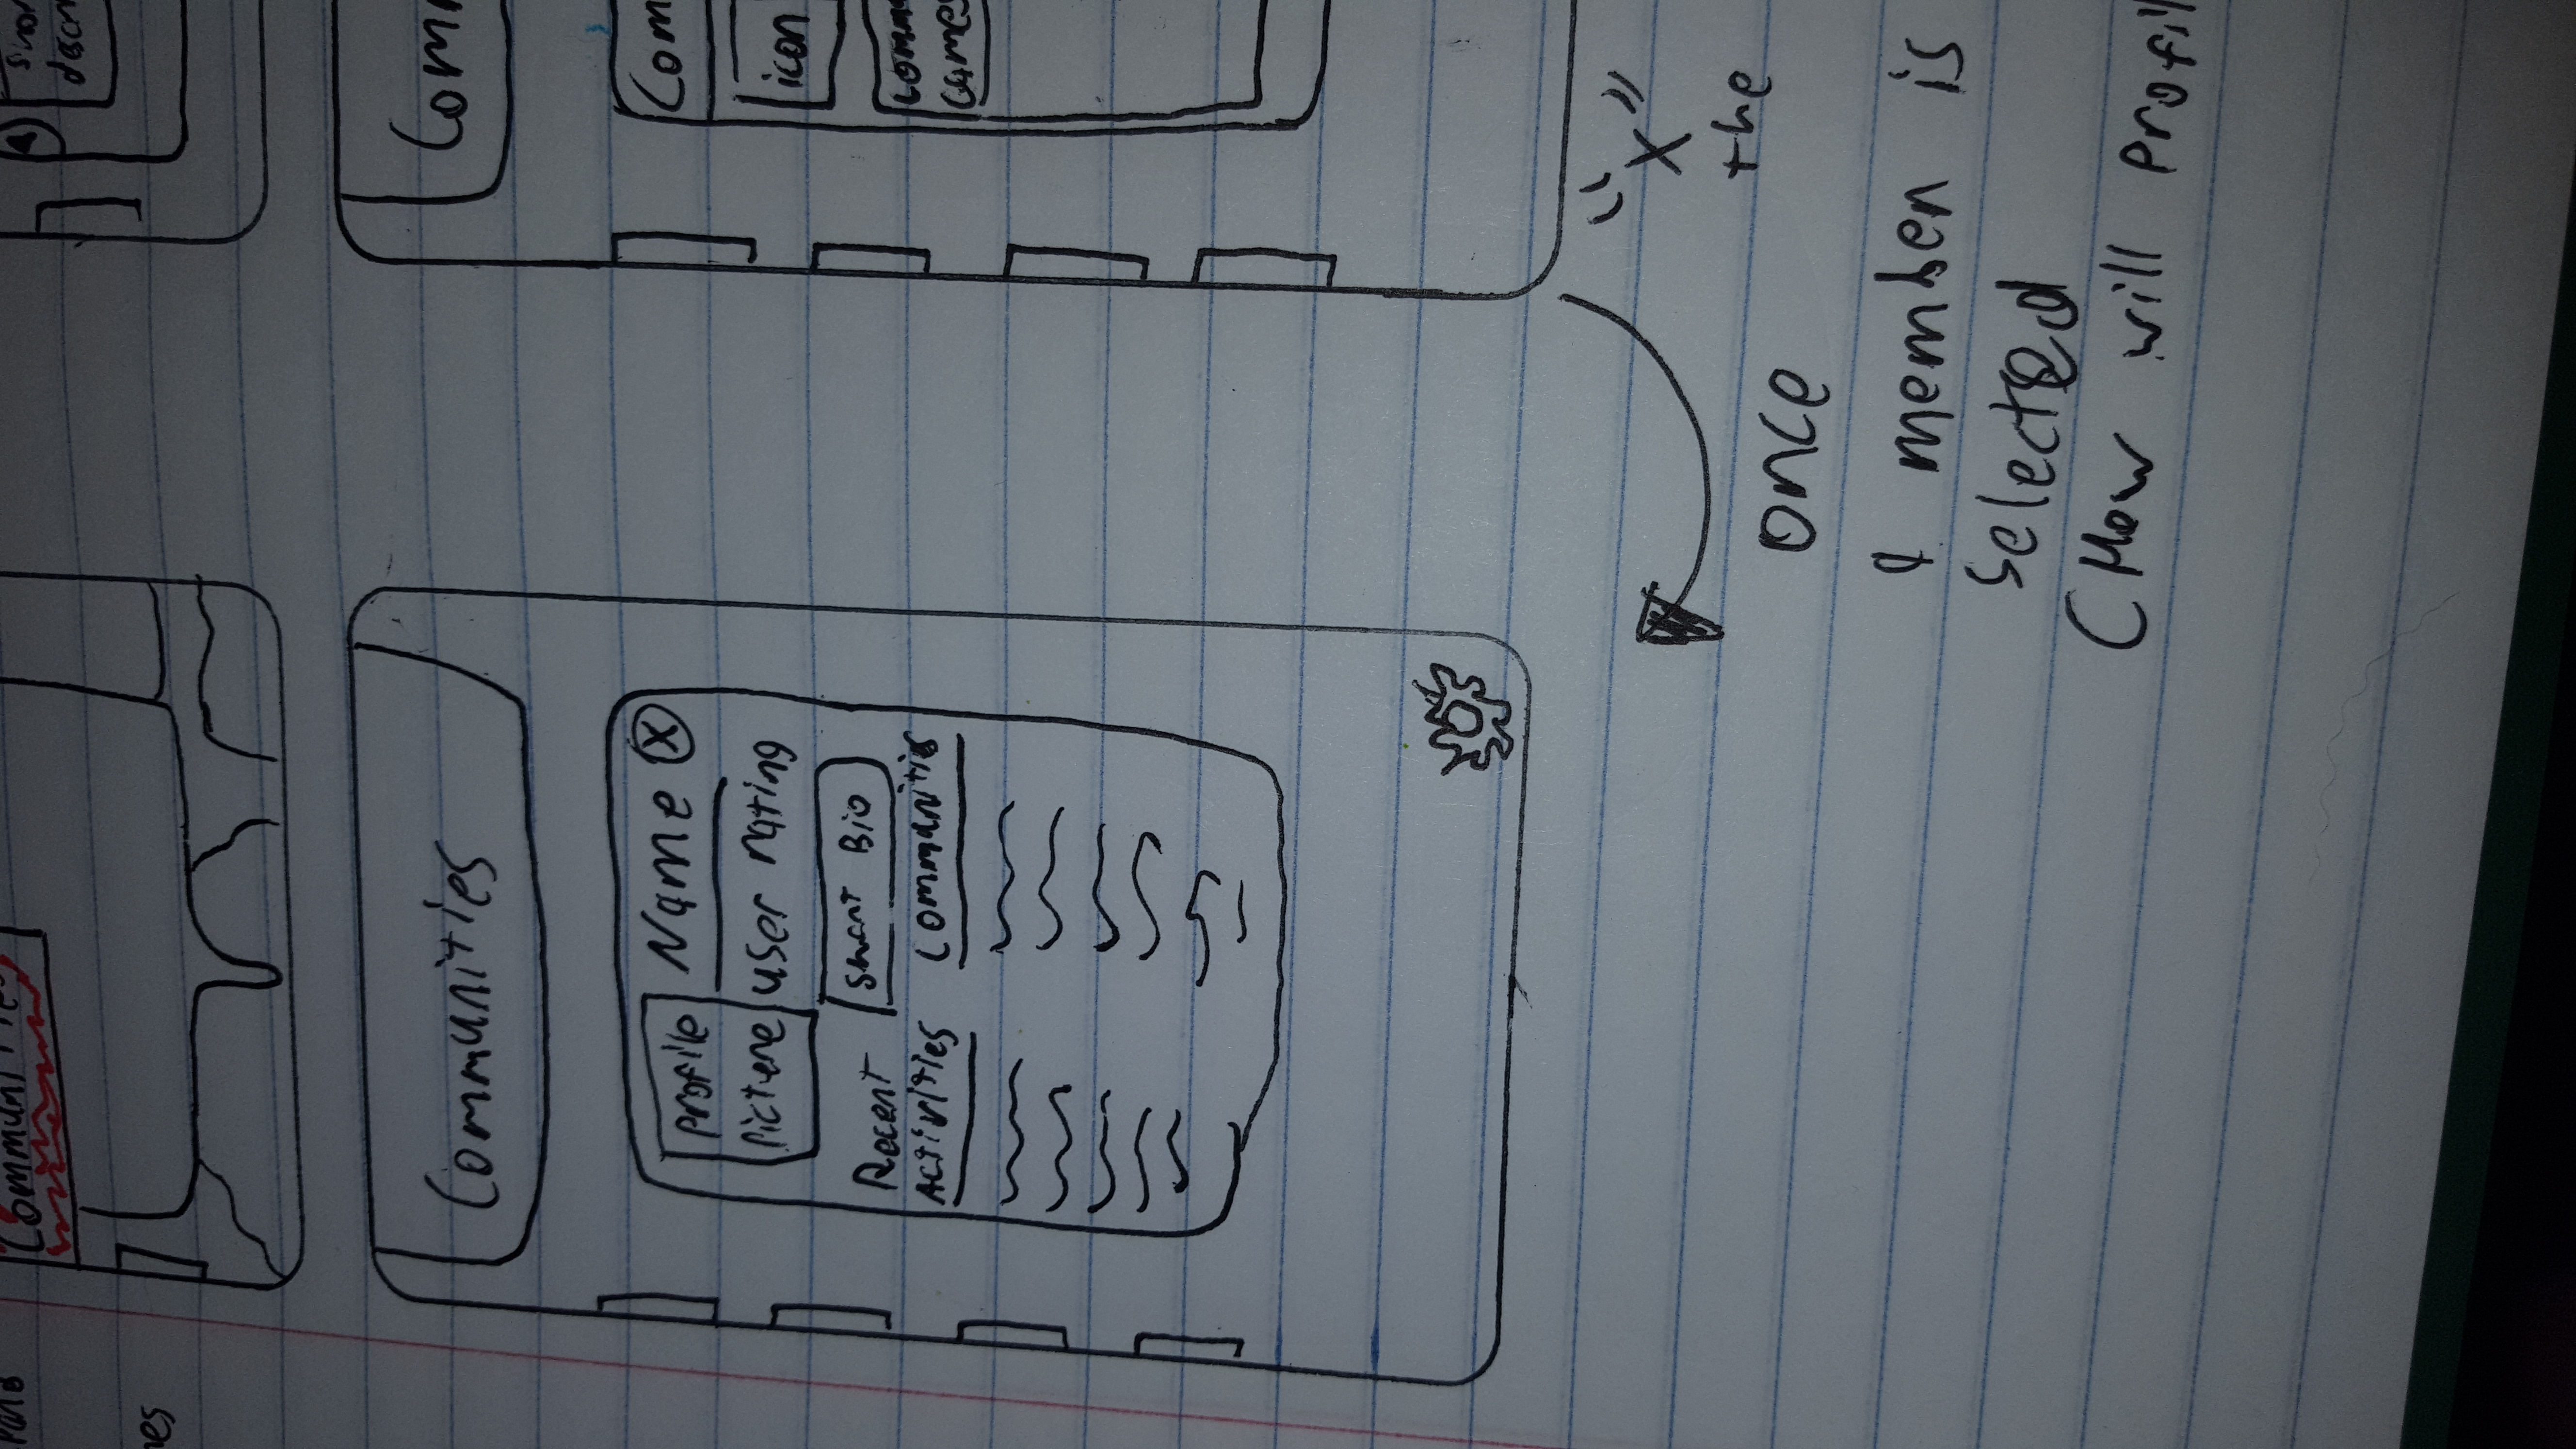 Communities
nes
Communities
Profile
Picture
Name X
user rating
Short Bio
Recent
Activities
Communities
Com
icon
Games
"X"
the
once
a member is
selected
(How will profil